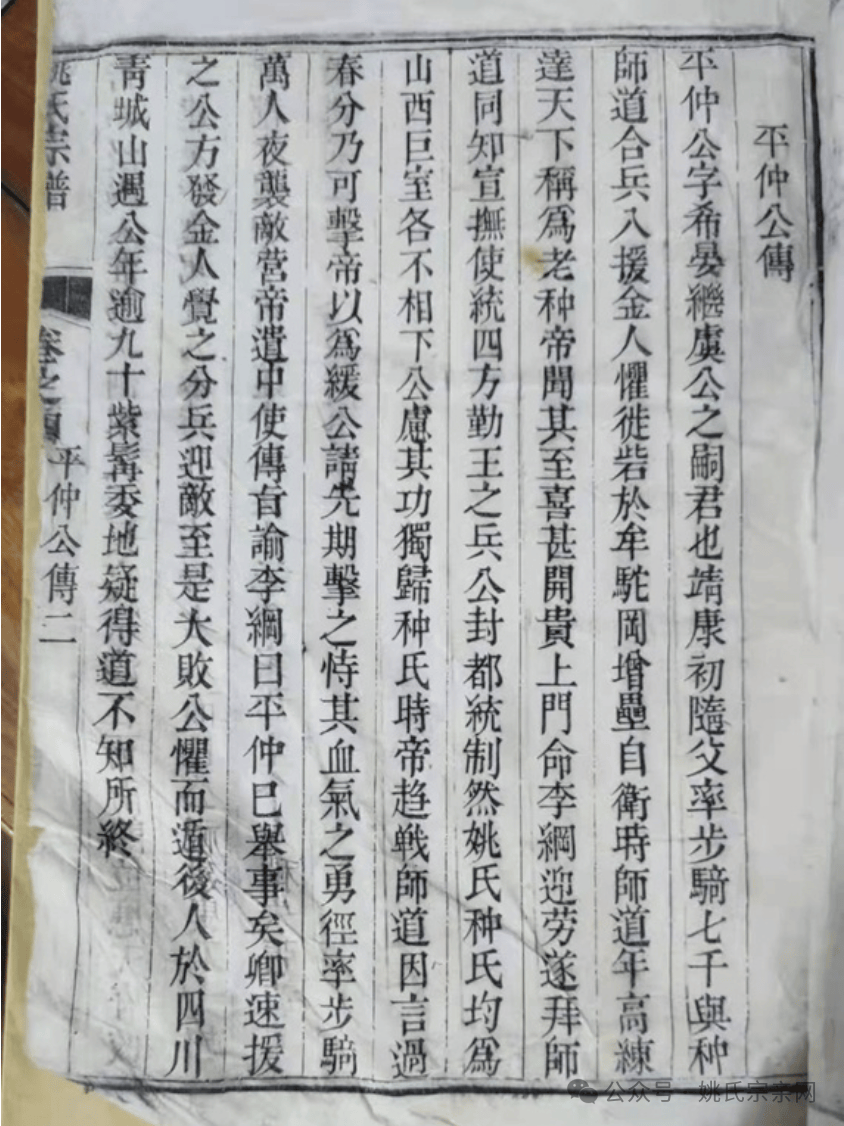 平仲公傳
平仲公字希晏繼虞公之嗣君也靖康初隨父率步騎七千與种
師道合兵入援金人懼徙砦於牟駝岡增壘自衛時師道年高練
達天下稱爲老种帝聞其至喜甚開貴上門命李綱迎劳遂拜師
道同知宣撫使統四方勤王之兵公封都統制然姚氏种氏均爲
山西巨室各不相下公慮其功獨歸种氏時帝趋戦師道因言過
春分乃可擊帝以爲緩公請先期擊之恃其血氣之勇徑率步騎
萬人夜襲敵营帝遣中使傳旨諭李綱曰平仲已舉事矣卿速援
之公方發金人覺之分兵迎敵至是大敗公懼而遁後人於四川
靑城山遇公年逾九十紫髯委地疑得道不知所終
姚氏宗譜
卷之首
平仲公傳 二
公众号·姚氏宗亲网